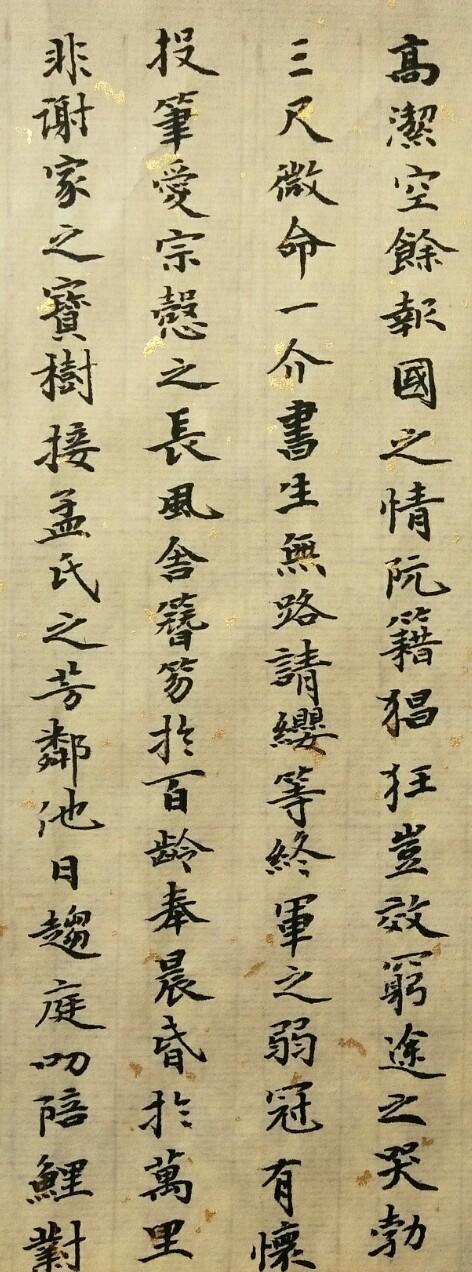 高潔空餘報國之情阮籍猖狂豈效窮途之哭勃
三尺微命一介書生無路請纓等終軍之弱冠有懷
投筆愛宗慤之長風舍簪笏於百齡奉晨昏於萬里
非謝家之寶樹接孟氏之芳鄰他日趨庭叨陪鯉對